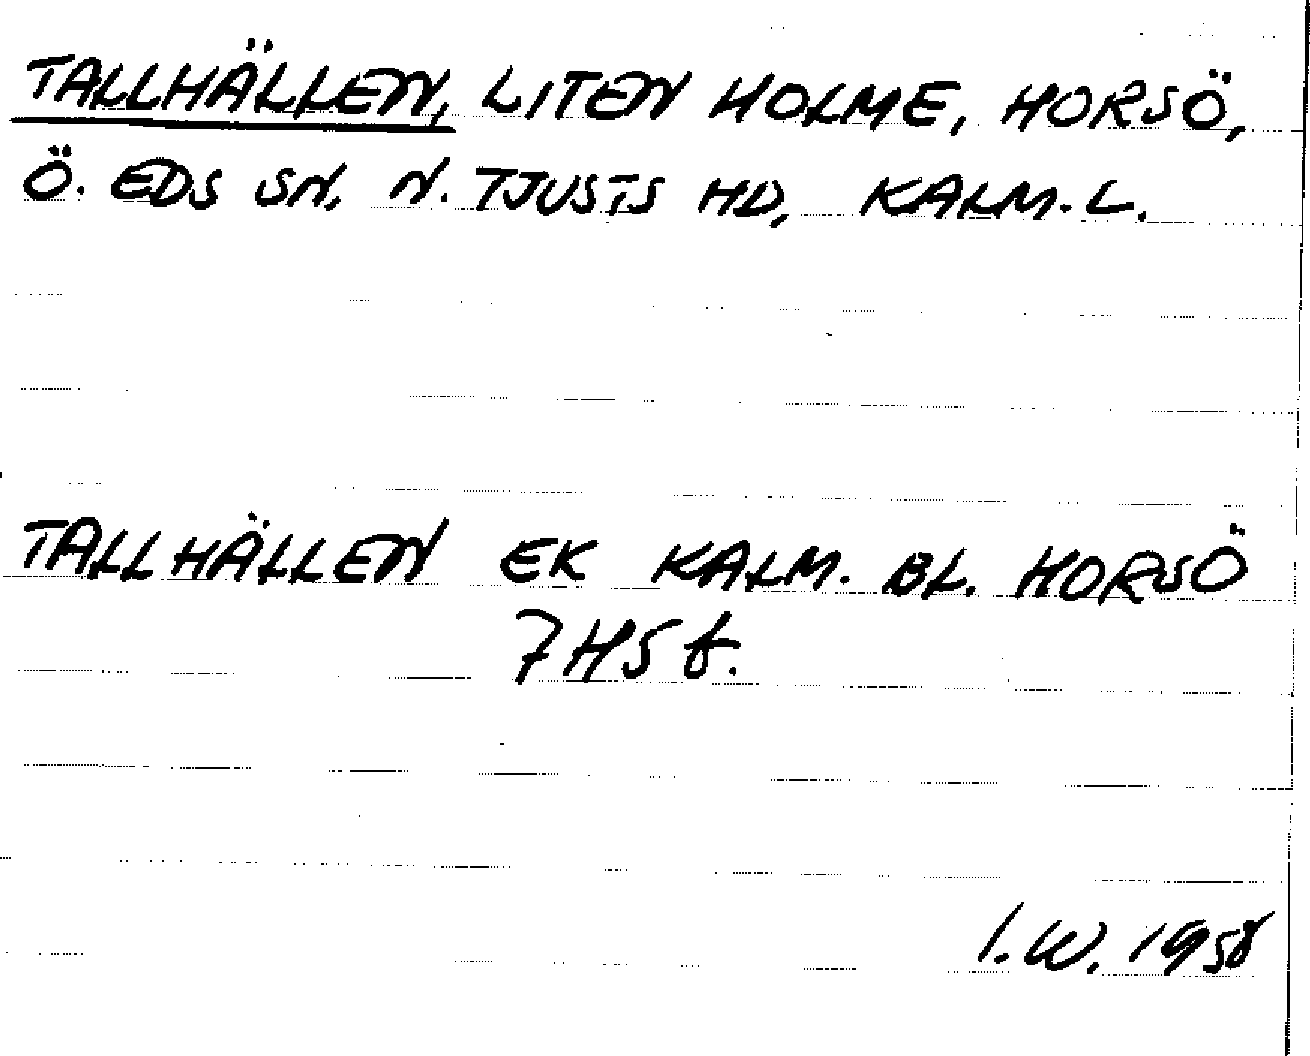 TALLHÄLLEN, LITEN HOLME, HORSÖ,
Ö. EDS SN, N. TJUSTS HD, KALM. L.
TALLHÄLLEN EK KALM. BL. HORSÖ
7H5 f.
I.W. 1958